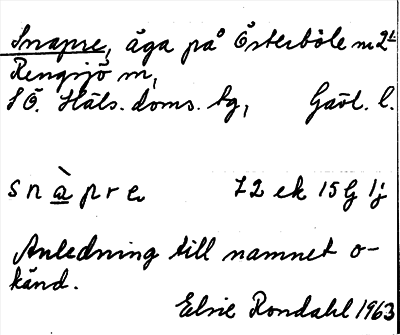 Snapre, äga på Österböle m 2:
Rengsjö m,
SÖ. Häls. doms. tg, Gävl. l.
s n à p r e 72 ek 15 G 1j
Anledning till namnet o-
känd.
Elsie Rondahl 1963